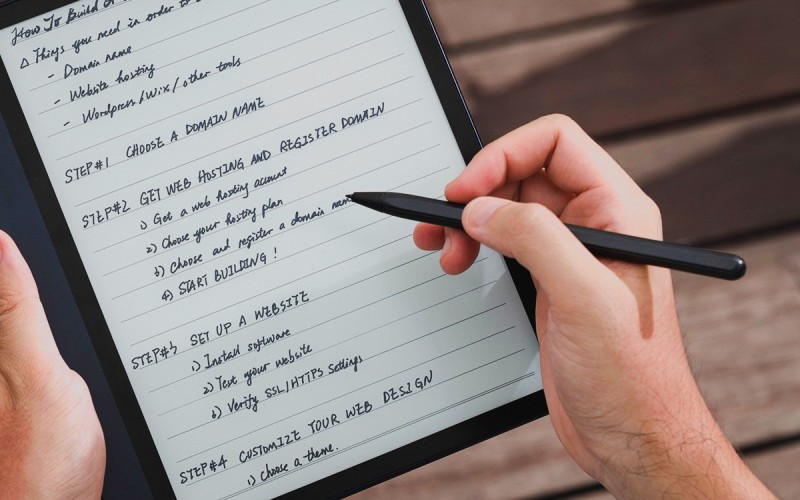 How To Build a
△ Things you need in order to
- Domain name
- Website hosting
- Wordpress/Wix/other tools
STEP#1 CHOOSE A DOMAIN NAME
STEP#2 GET WEB HOSTING AND REGISTER DOMAIN
1) Get a web hosting account
2) Choose your hosting plan
3) Choose and register a domain nam
4) START BUILDING!
STEP#3 SET UP A WEBSITE
1) Install software
2) Test your website
3) Verify SSL/HTTPS Settings
STEP#4 CUSTOMIZE YOUR WEB DESIGN
1) Choose a theme.